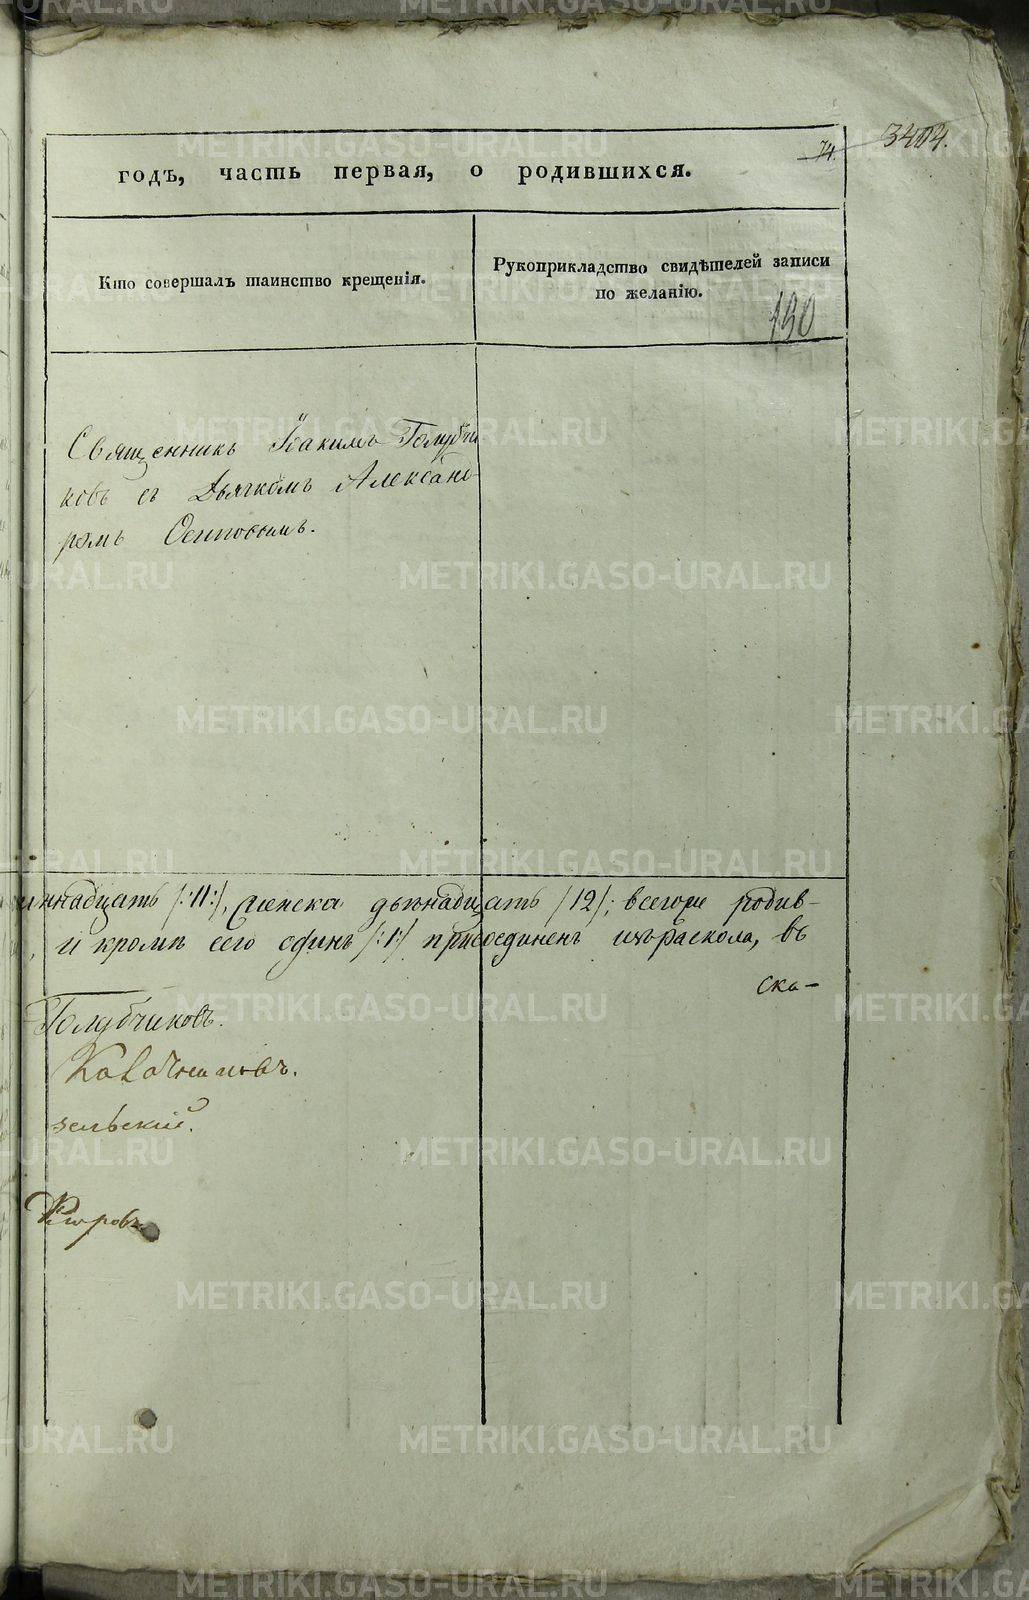 74. 3404.
годъ, часть первая, о родившихся.
Кто совершалъ таинство крещенія.
Рукоприкладство свидѣтелей записи
по желанію.
190
Священникъ Іоакимъ Голубчи
ковъ съ Дьячкомъ Александ-
ромъ Осиповымъ.
иннадцать /:11:/, женска двѣнадцать /12/; всегоже родив-
, и кромѣ сего одинъ /:1:/ присоединенъ изъ раскола, въ
ска-
Голубчиковъ.
зельскій.
METRIKI.GASO-URAL.RU